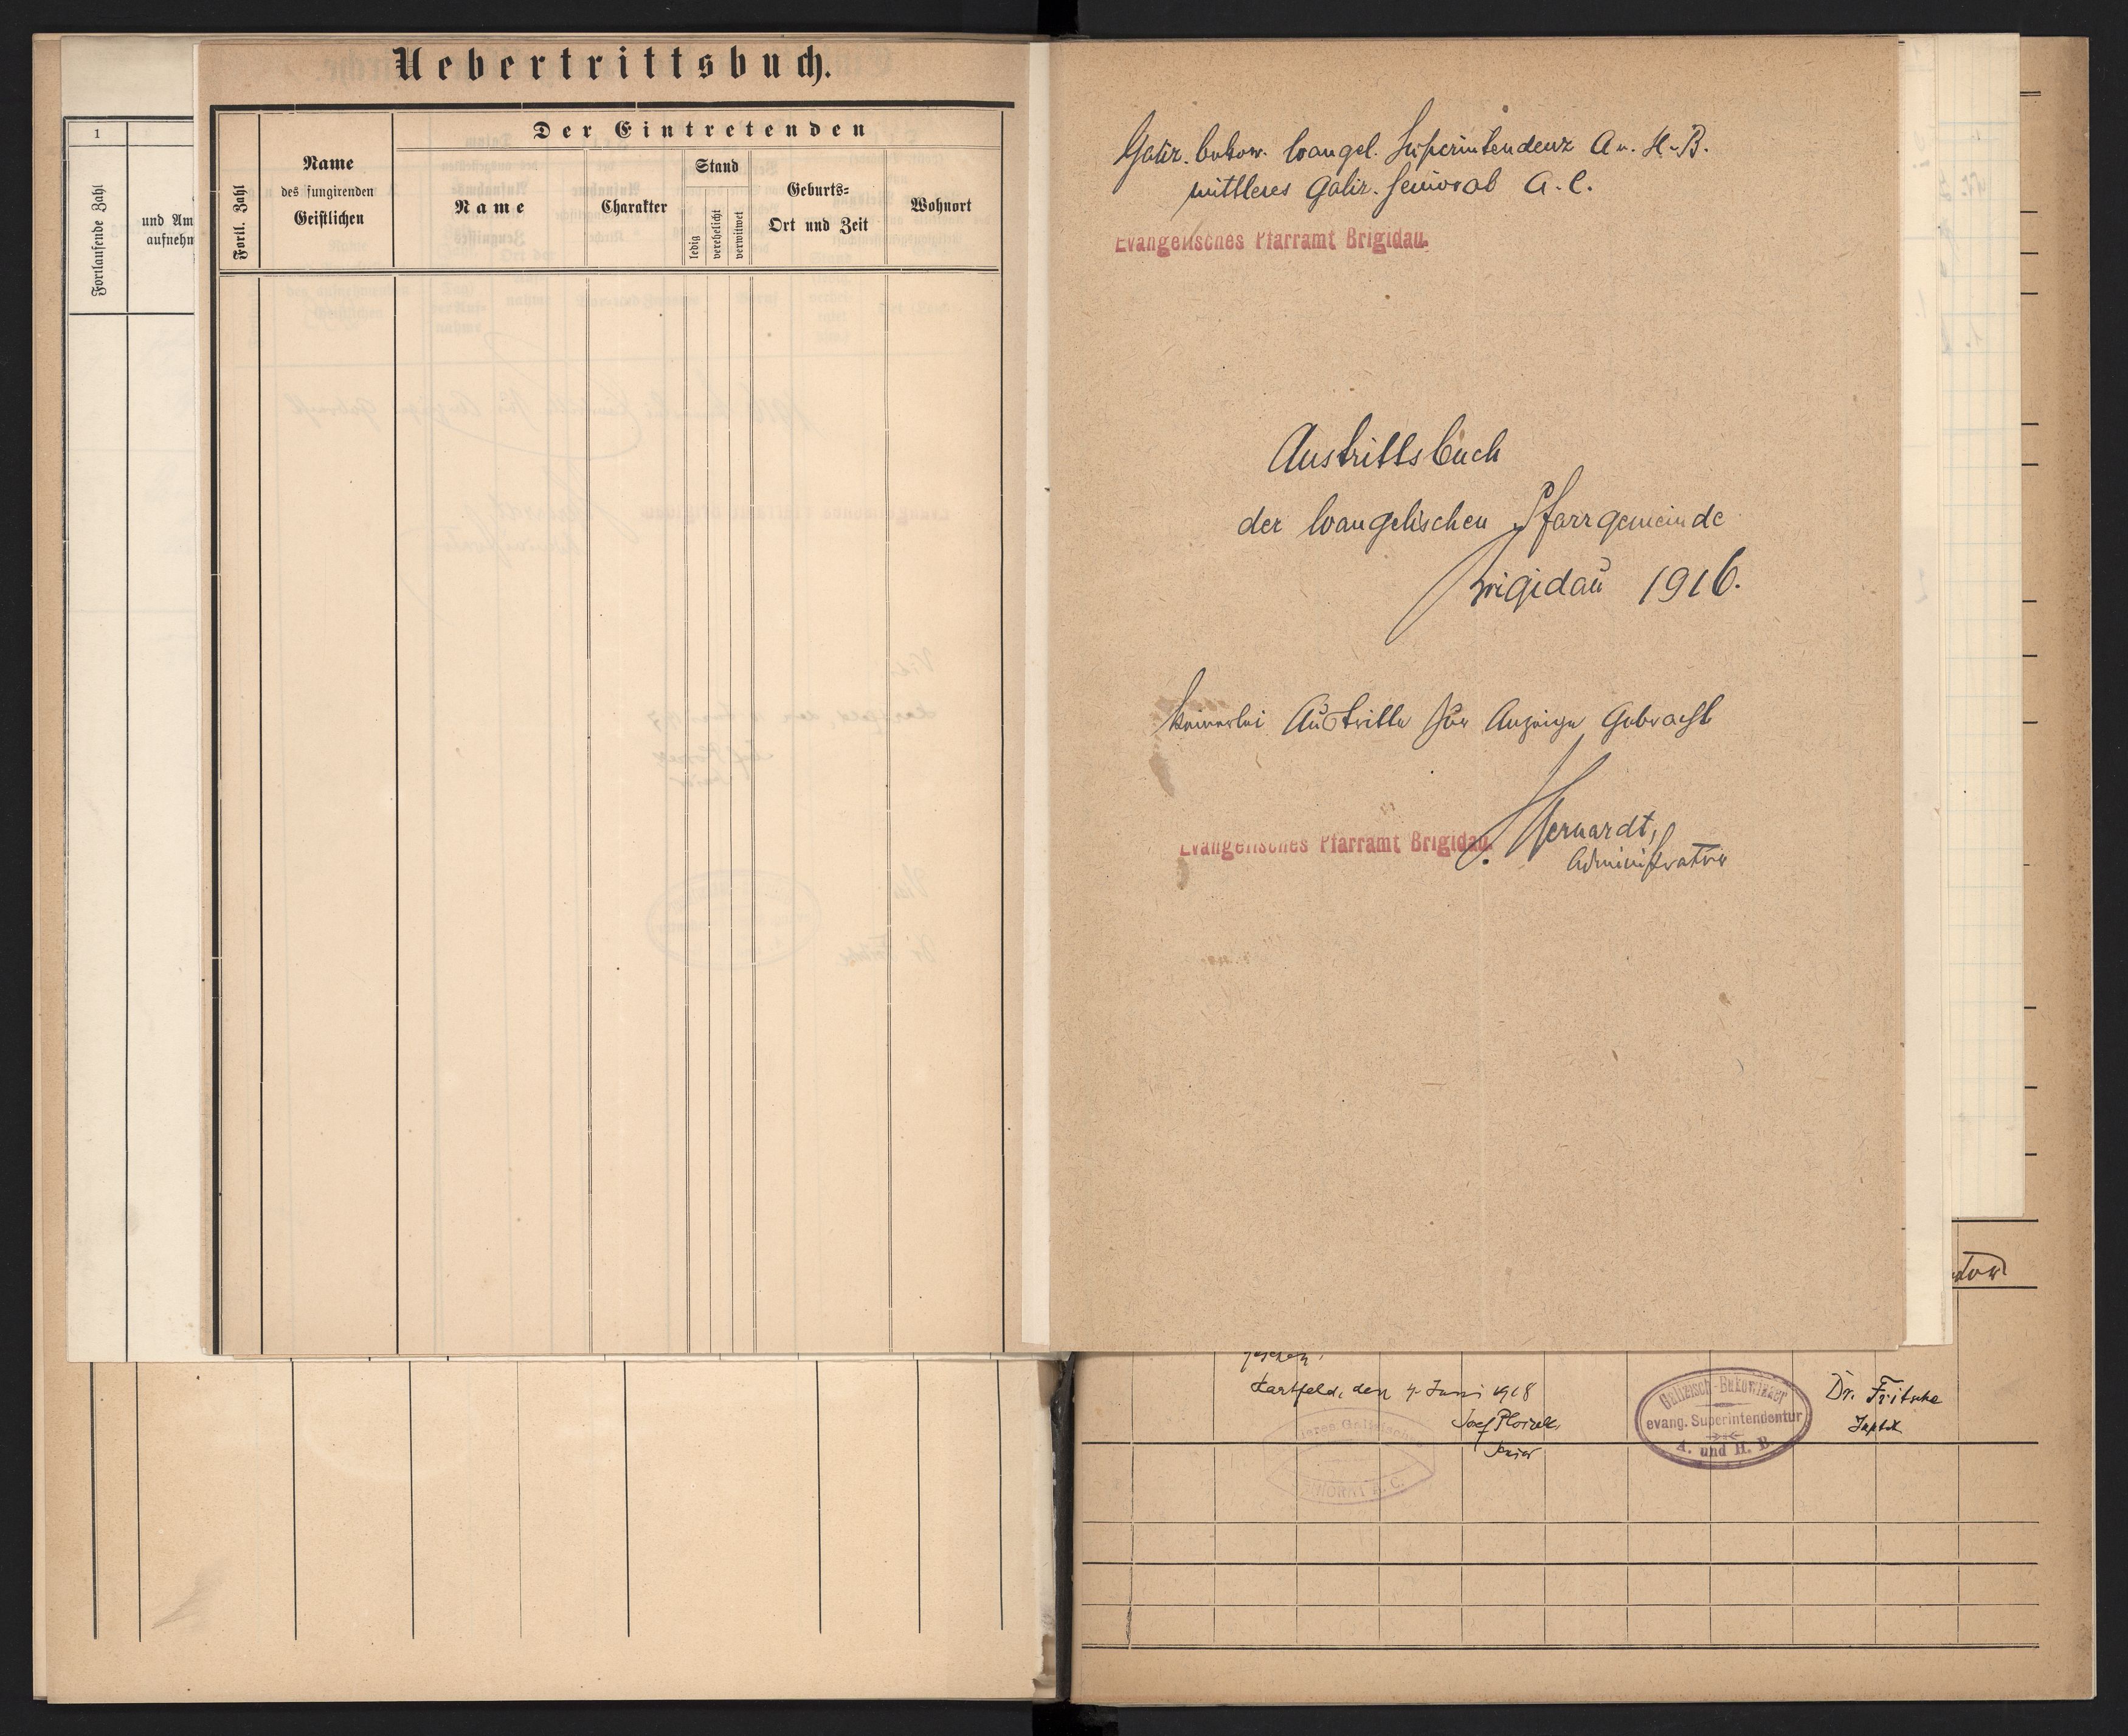 Uebertrittsbuch.
1
Fortlaufende Zahl
und Am
aufnehm
Fortl. Zahl
Name
des fungirenden
Geistlichen
Der Eintretenden
Name
Charakter
Stand
ledig
verehelicht
verwitwet
Geburts=
Ort und Zeit
Wohnort
Galiz. bukow. evangel. Superintendenz A u. H. B.
mittleres galiz. Seniorat A. C.
Evangelisches Pfarramt Brigidau.
Austrittsbuch
der evangelischen Pfarrgemeinde
Brigidau 1916.
Keinerlei Austritte zur Anzeige gebracht
Evangelisches Pfarramt Brigidau.
Administrator
den 4. Juni 1918
Josef
Senior
Galizisch-Bukowinaer
evang. Superintendentur
A. und H. B.
Dr. Fritsche
Suptdt